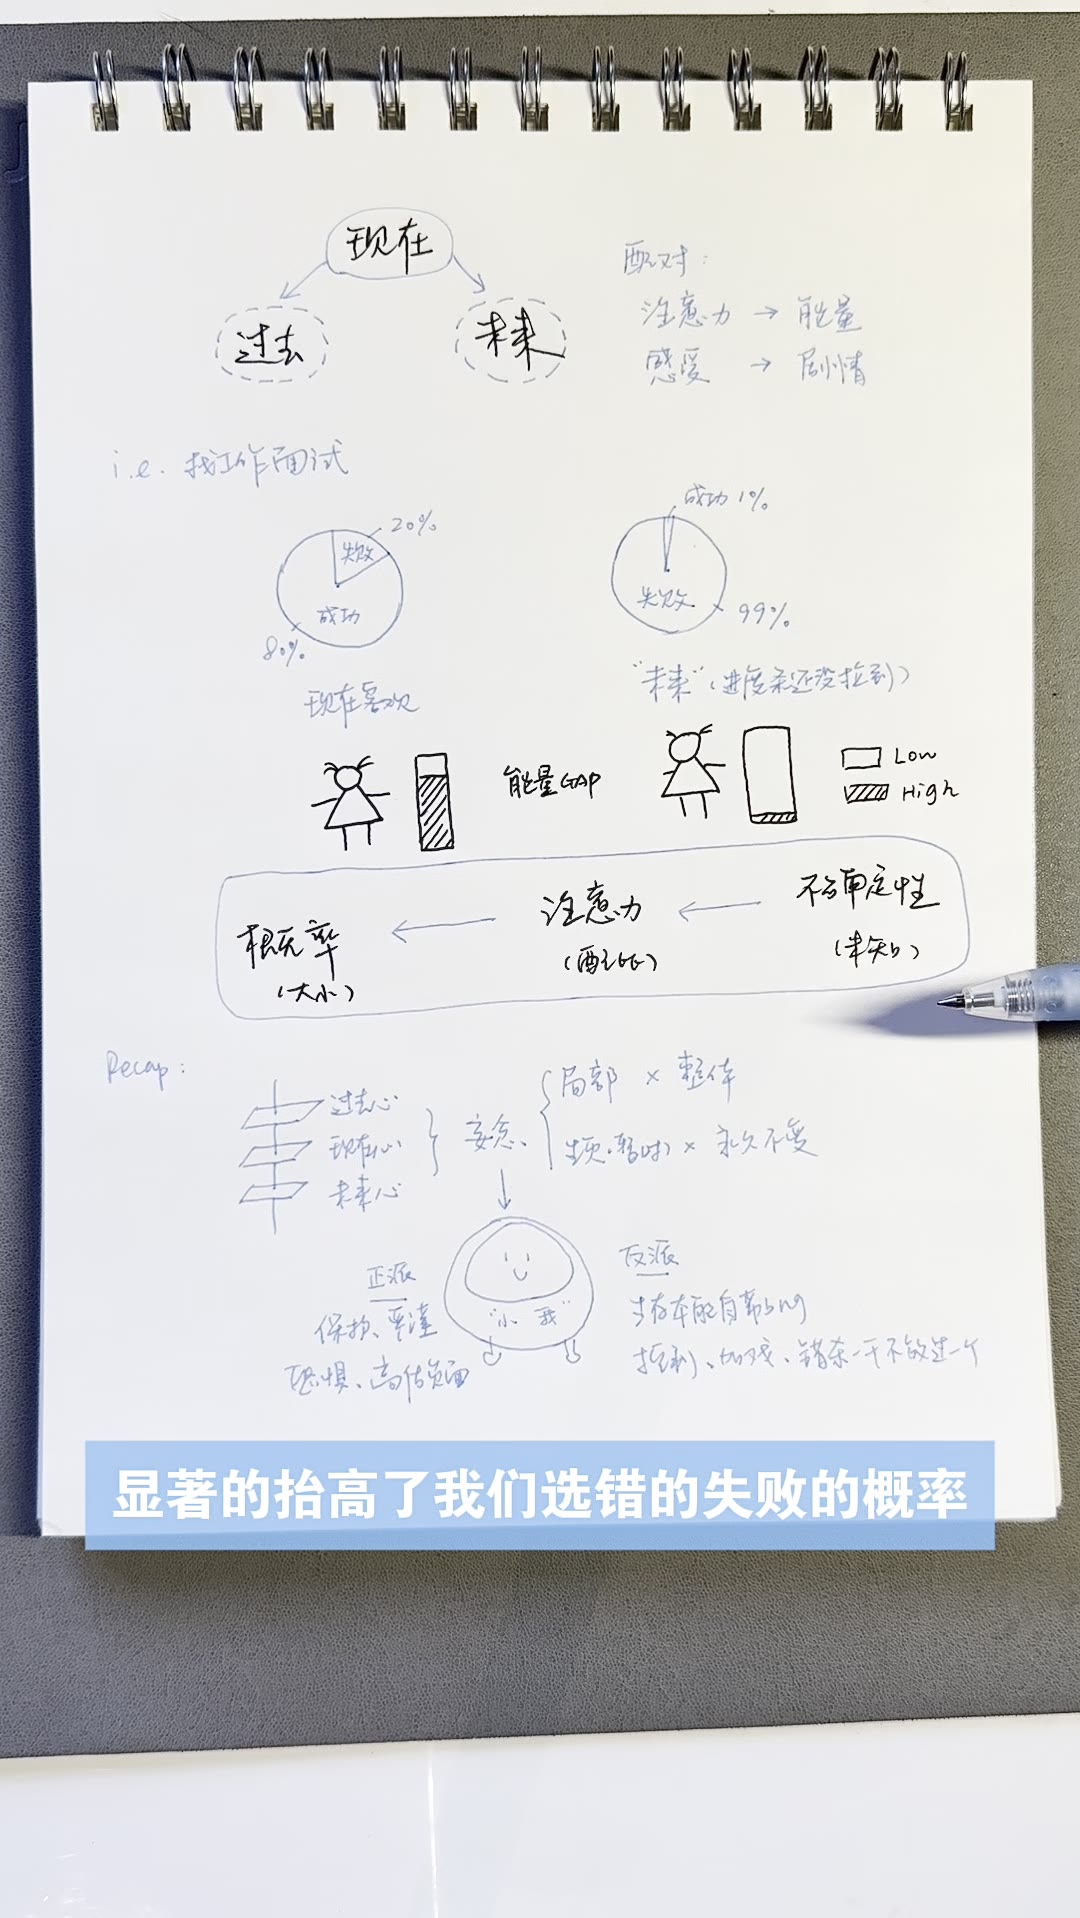 现在
过去
未来
配对：
注意力 → 能量
感受 → 剧情
i.e. 找工作面试
20%
失败
成功
80%
现在客观
成功 1%
失败
99%
"未来"（进度条还没拉到）
能量GAP
Low
High
概率 ← 注意力 ← 不确定性
（大小） （配比） （未知）
Recap：
过去心
现在心
未来心
妄念
局部 × 整体
暂时 × 永久不变
正派
保护、严谨
恐惧、高估负面
"小我"
反派
生存本能自带bug
控制、加戏、错杀一千不放过一个
显著的抬高了我们选错的失败的概率